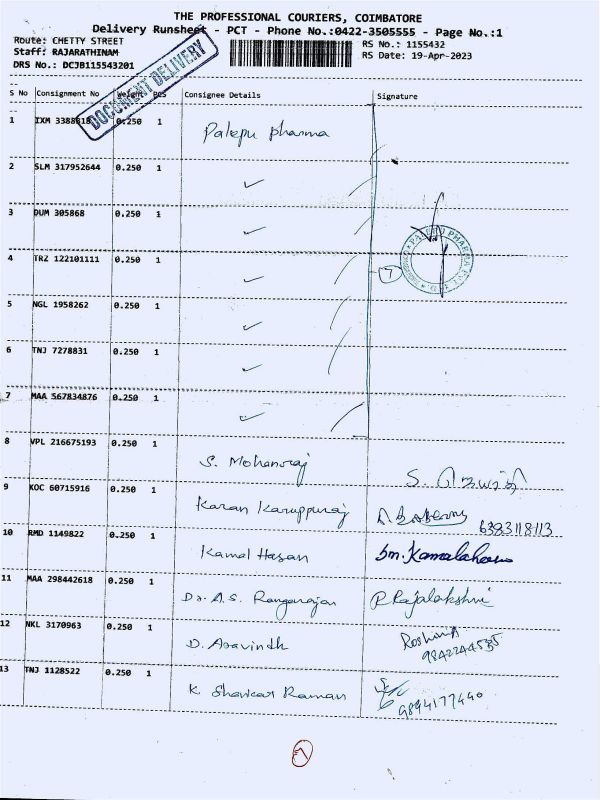 THE PROFESSIONAL COURIERS, COIMBATORE
Delivery Runsheet - PCT - Phone No.:0422-3505555 - Page No.:1
Route: CHETTY STREET
Staff: RAJARATHINAM
DRS No.: DCJB115543201
RS No.: 1155432
RS Date: 19-Apr-2023
DOCUMENT DELIVERY
S No Consignment No Weight PCS Consignee Details Signature
1 IXM 0.250 1 Palepu pharma
2 SLM 317952644 0.250 1 ✓
3 DUM 305868 0.250 1 ✓
4 TRZ 122101111 0.250 1 ✓
7
5 NGL 1958262 0.250 1 ✓
6 TNJ 7278831 0.250 1 ✓
7 MAA 567834876 0.250 1 ✓
8 VPL 216675193 0.250 1 S. Mohanraj
9 KOC 60715916 0.250 1 Karan Karuppuraj 6383118113
10 RMD 1149822 0.250 1 Kamal Hasan
11 MAA 298442618 0.250 1 Dr. A.S. Rangarajan P. Rajalakshmi
12 NKL 3170963 0.250 1 D. Aravinth
13 TNJ 1128522 0.250 1 K Shankar Raman